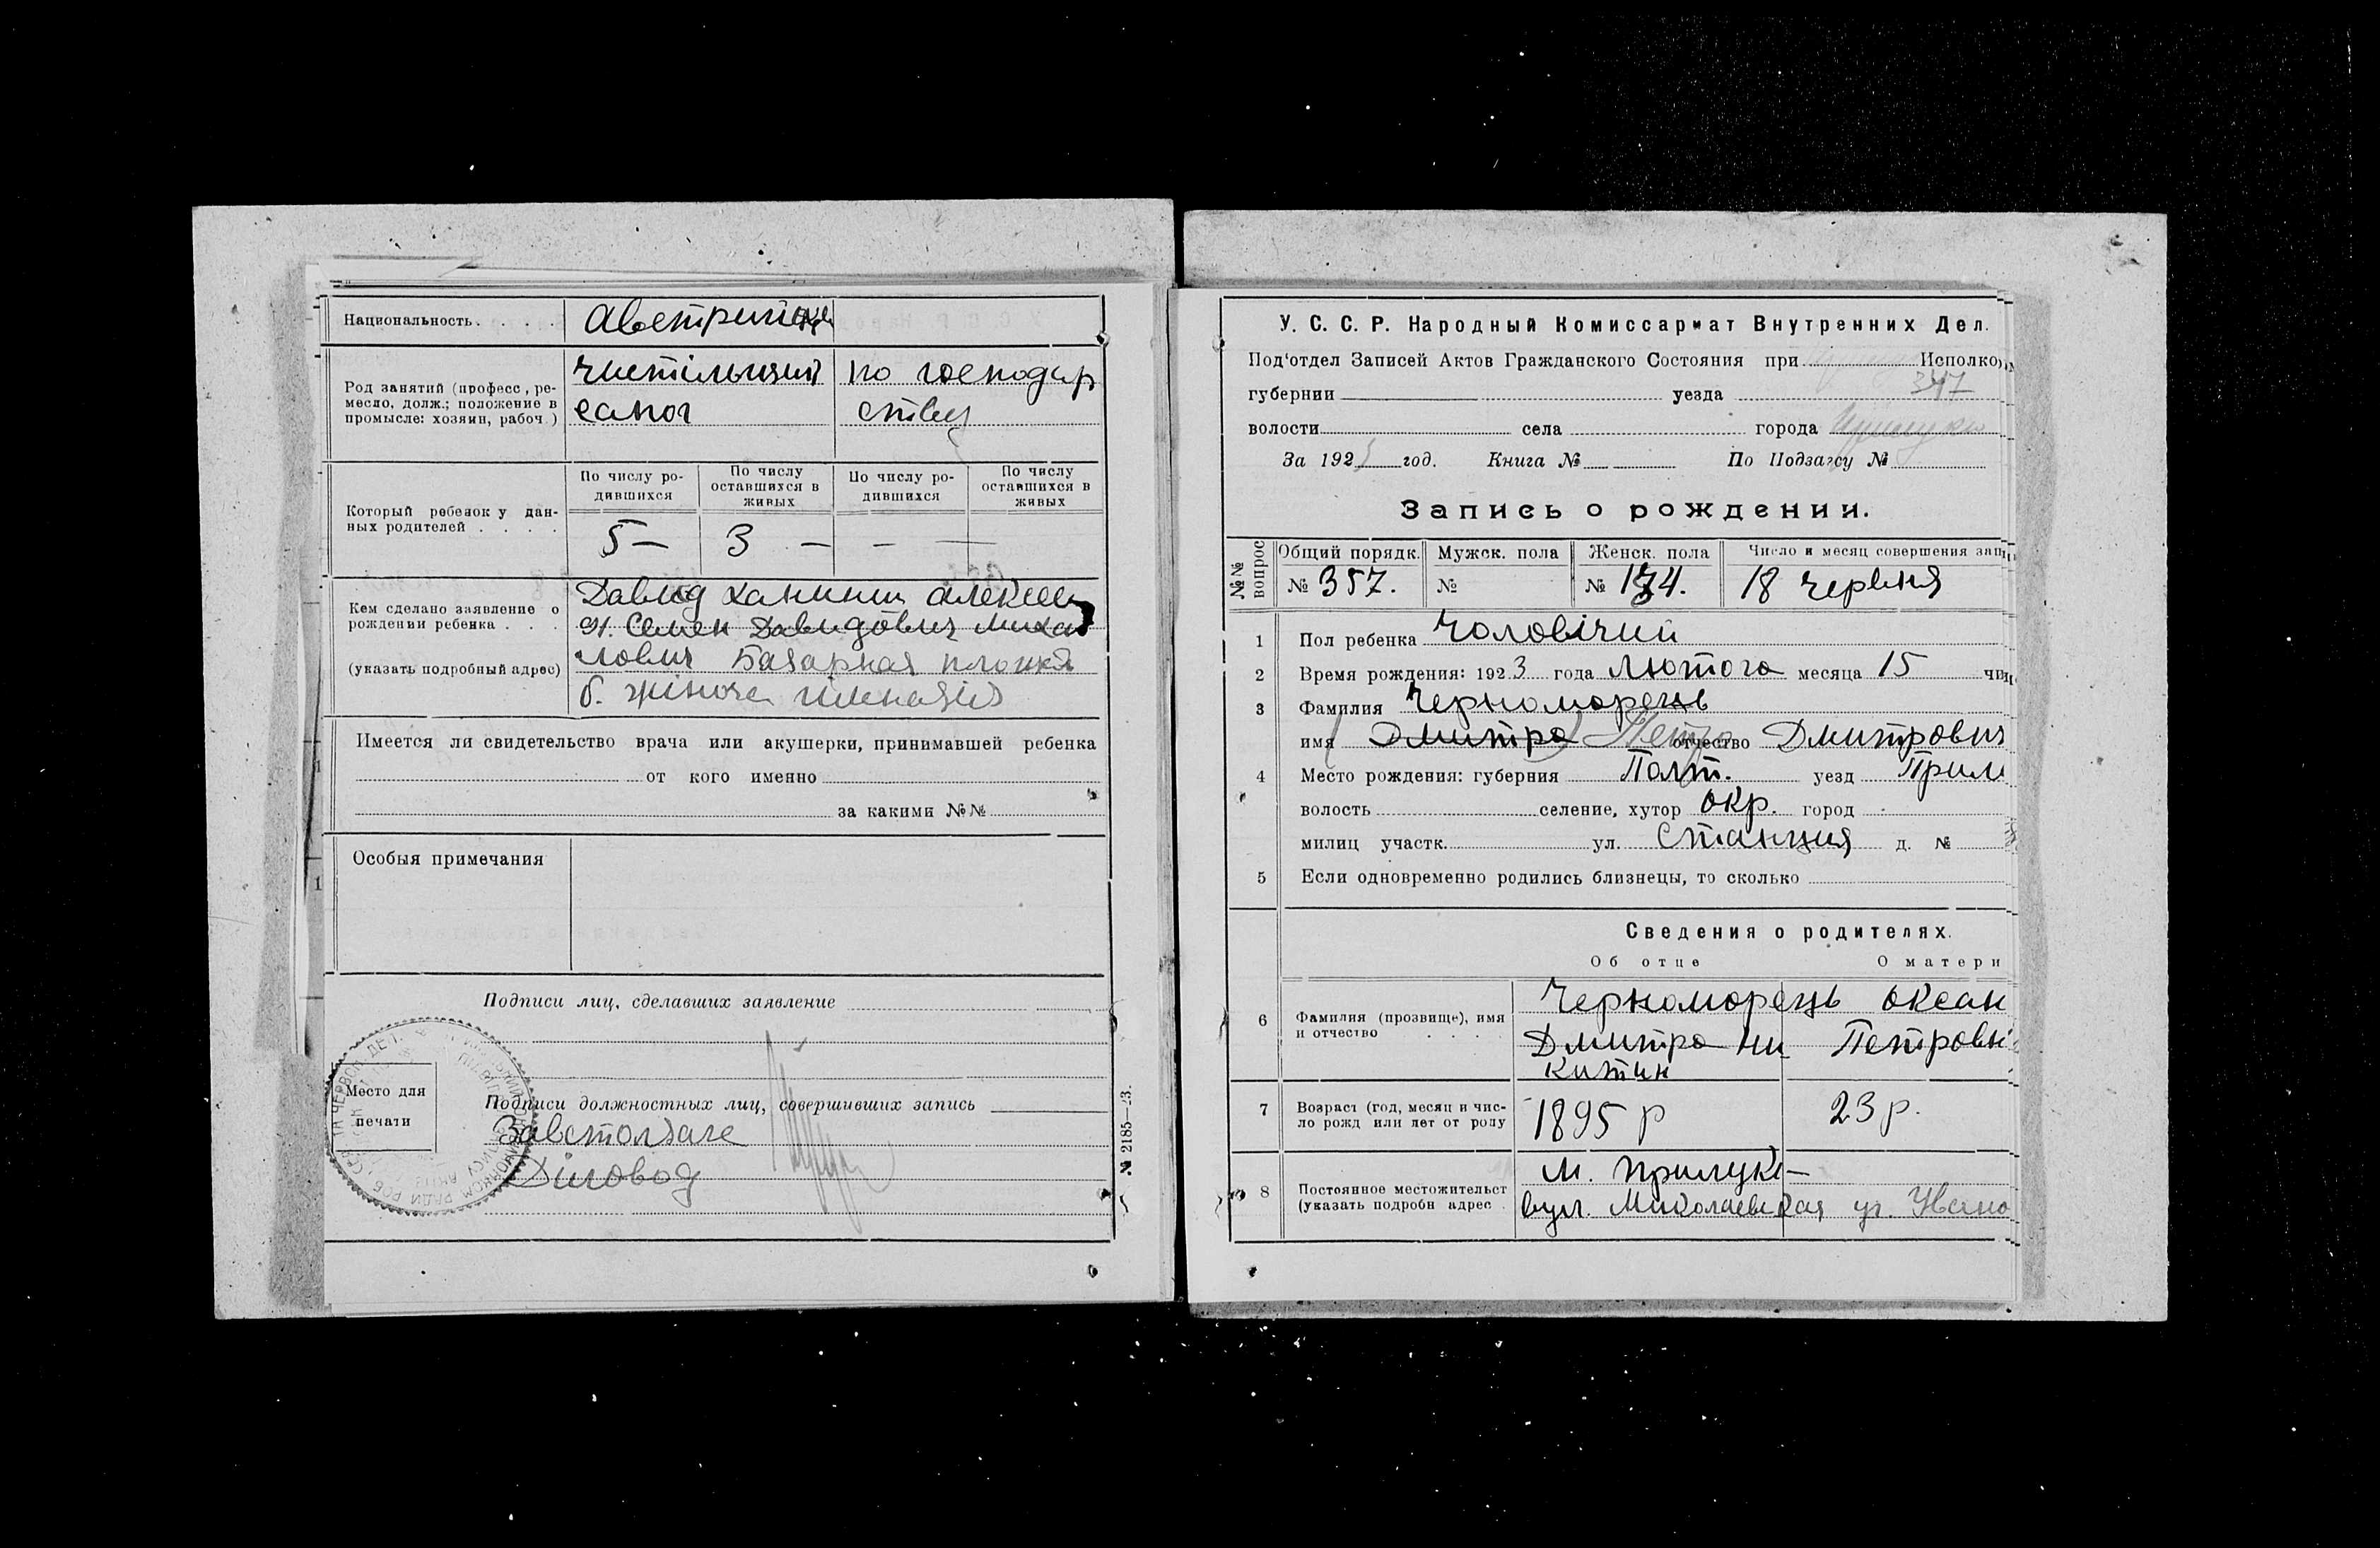 Национальность. . . . .
Род занятий (професс, ре-
месло, долж.; положение в
промысле: хозяин, рабоч.)
чистільщий по господар
сапог ству
Который ребенок у дан-
ных родителей . . . .
По числу ро-
дившихся
По числу
оставшихся в
живых
По числу ро-
дившихся
По числу
оставшихся в
живых
5 — 3 — — —
Кем сделано заявление о
рождении ребенка . . .
(указать подробный адрес)
Давид
Семен Давидович Михай
лович Базарная площа
б. жіноча гімназія
Имеется ли свидетельство врача или акушерки, принимавшей ребенка
от кого именно
за какими №№
Особыя примечания
Подписи лиц, сделавших заявление
Место для
печати
Подписи должностных лиц, совершивших запись
Завстолзаге
Діловод
№ 2185—23.
У. С. С. Р. Народный Комиссариат Внутренних Дел.
Под'отдел Записей Актов Гражданского Состояния при Исполко
губернии уезда 347
волости села города
За 192 год. Книга № По Подзагсу №
Запись о рождении.
№№ вопрос
Общий порядк. Мужск. пола Женск. пола Число и месяц совершения зап
№ 357. № № 174. 18 червня
1 Пол ребенка Чоловічий
2 Время рождения: 1923 года Лютого месяца 15 чи
3 Фамилия Черноморець
имя Дмитро Петро отчество Дмитрович
4 Место рождения: губерния Полт. уезд Прил
волость селение, хутор окр. город
милиц участк. ул. Станция д. №
5 Если одновременно родились близнецы, то сколько
Сведения о родителях.
Об отце О матери
6 Фамилия (прозвище), имя
и отчество . . . .
Черноморець Оксан
Дмитро Ми Петровн
китин
7 Возраст (год, месяц и чис-
ло рожд или лет от роду
1895 р 23 р.
8 Постоянное местожительст
(указать подробн адрес .
м. Прилуки —
вул. Миколаевская